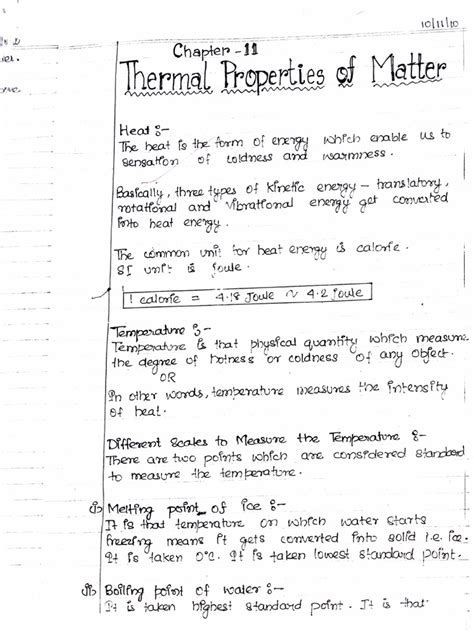 10/11/10
Chapter - 11
Thermal Properties of Matter
Heat :-
The heat is the form of energy which enable us to
sensation of coldness and warmness.
Basically, three types of kinetic energy - translatory,
rotational and vibrational energy get converted
into heat energy.
The common unit for heat energy is calorie.
SI unit is joule.
1 calorie = 4.18 Joule ~ 4.2 joule
Temperature :-
Temperature is that physical quantity which measure
the degree of hotness or coldness of any object.
OR
In other words, temperature measures the intensity
of heat.
Different Scales to Measure the Temperature :-
There are two points which are considered standard
to measure the temperature.
i) Melting point of ice :-
It is that temperature on which water starts
freezing means it gets converted into solid i.e. ice.
It is taken 0°C. It is taken lowest standard point.
ii) Boiling point of water :-
It is taken highest standard point. It is that